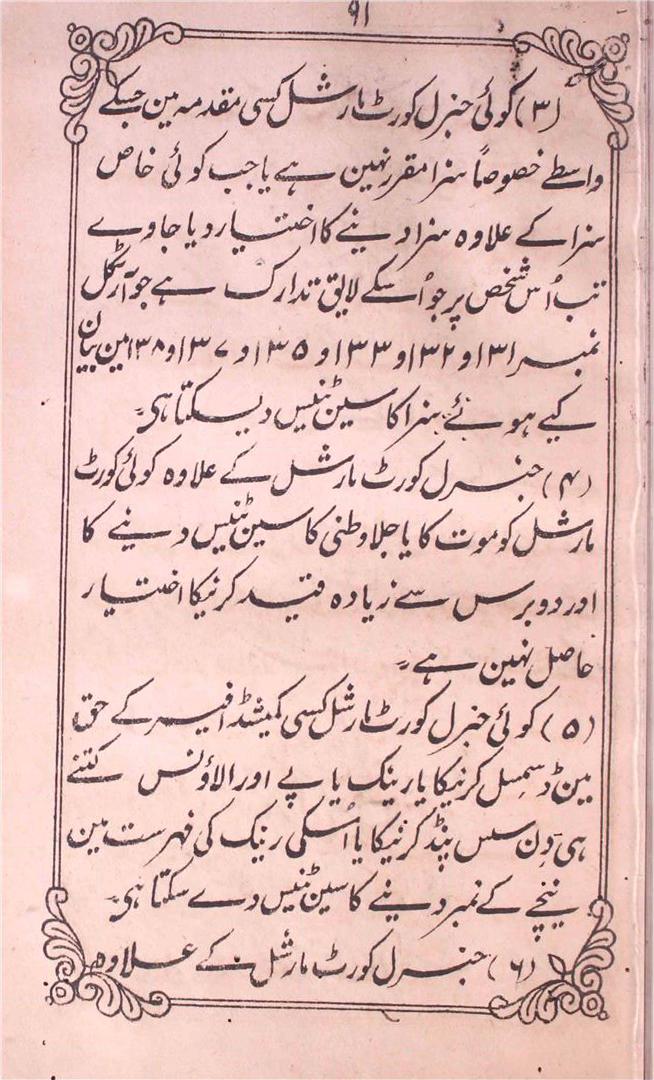 ۹۱
(۳) کوئی جنرل کورٹ مارشل کسی مقدمہ مین جسکے
واسطے خصوصاً سزا مقرر نہین ہے یا جب کوئی خاص
سزا کے علاوہ سزا دینے کا اختیار دیا جاوے
تب اُس شخص پر جو اُسکے لایق تدارک ہے جو آرٹکل
نمبر ۱۳۱ و ۱۳۲ و ۱۳۳ و ۱۳۵ و ۱۳۷ و ۱۳۸ مین بیان
کیے ہوئے سزا کا سین ٹینس دیسکتا ہی۔
(۴) جنرل کورٹ مارشل کے علاوہ کوئی کورٹ
مارشل کو موت کا یا جلاوطنی کا سین ٹینس دینے کا
اور دو برس سے زیادہ قید کرنیکا اختیار
حاصل نہین ہے۔
(۵) کوئی جنرل کورٹ مارشل کسی کمیشنڈ افیسر کے حق
مین ڈسمسل کرنیکا یا رینک یا پے اور الاؤنس کتنے
ہی دِن سس پنڈ کرنیکا یا اُسکی رینک کی فہرست مین
نیچے کے نمبر دینے کا سین ٹینس دے سکتا ہی۔
(۶) جنرل کورٹ مارشل کے علاوہ